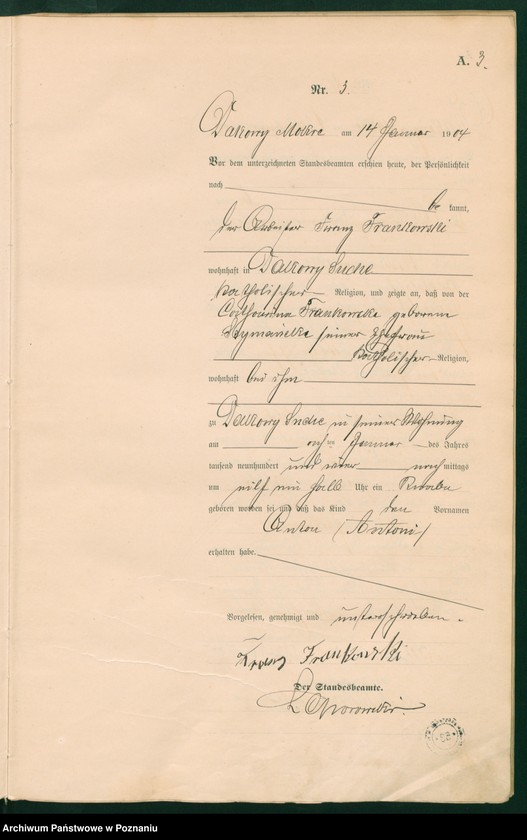 A. 3.
Nr. 3.
Dakowy Mokre am 14 Januar 1904
Vor dem unterzeichneten Standesbeamten erschien heute, der Persönlichkeit
nach
be kannt,
der Arbeiter Franz Frankowski
wohnhaft in Dakowy Suche
katholischer Religion, und zeigte an, daß von der
Frankowska geborenen
seiner Ehefrau
katholischer Religion,
wohnhaft bei ihm
zu Dakowy Suche in seiner Wohnung
am ten Januar des Jahres
tausend neunhundert und vier nach mittags
um ein halb Uhr ein Knabe
geboren worden sei und daß das Kind den Vornamen
Anton (Antoni)
erhalten habe.
Vorgelesen, genehmigt und unterschrieben.
Franz Frankowski
Der Standesbeamte.
Archiwum Państwowe w Poznaniu